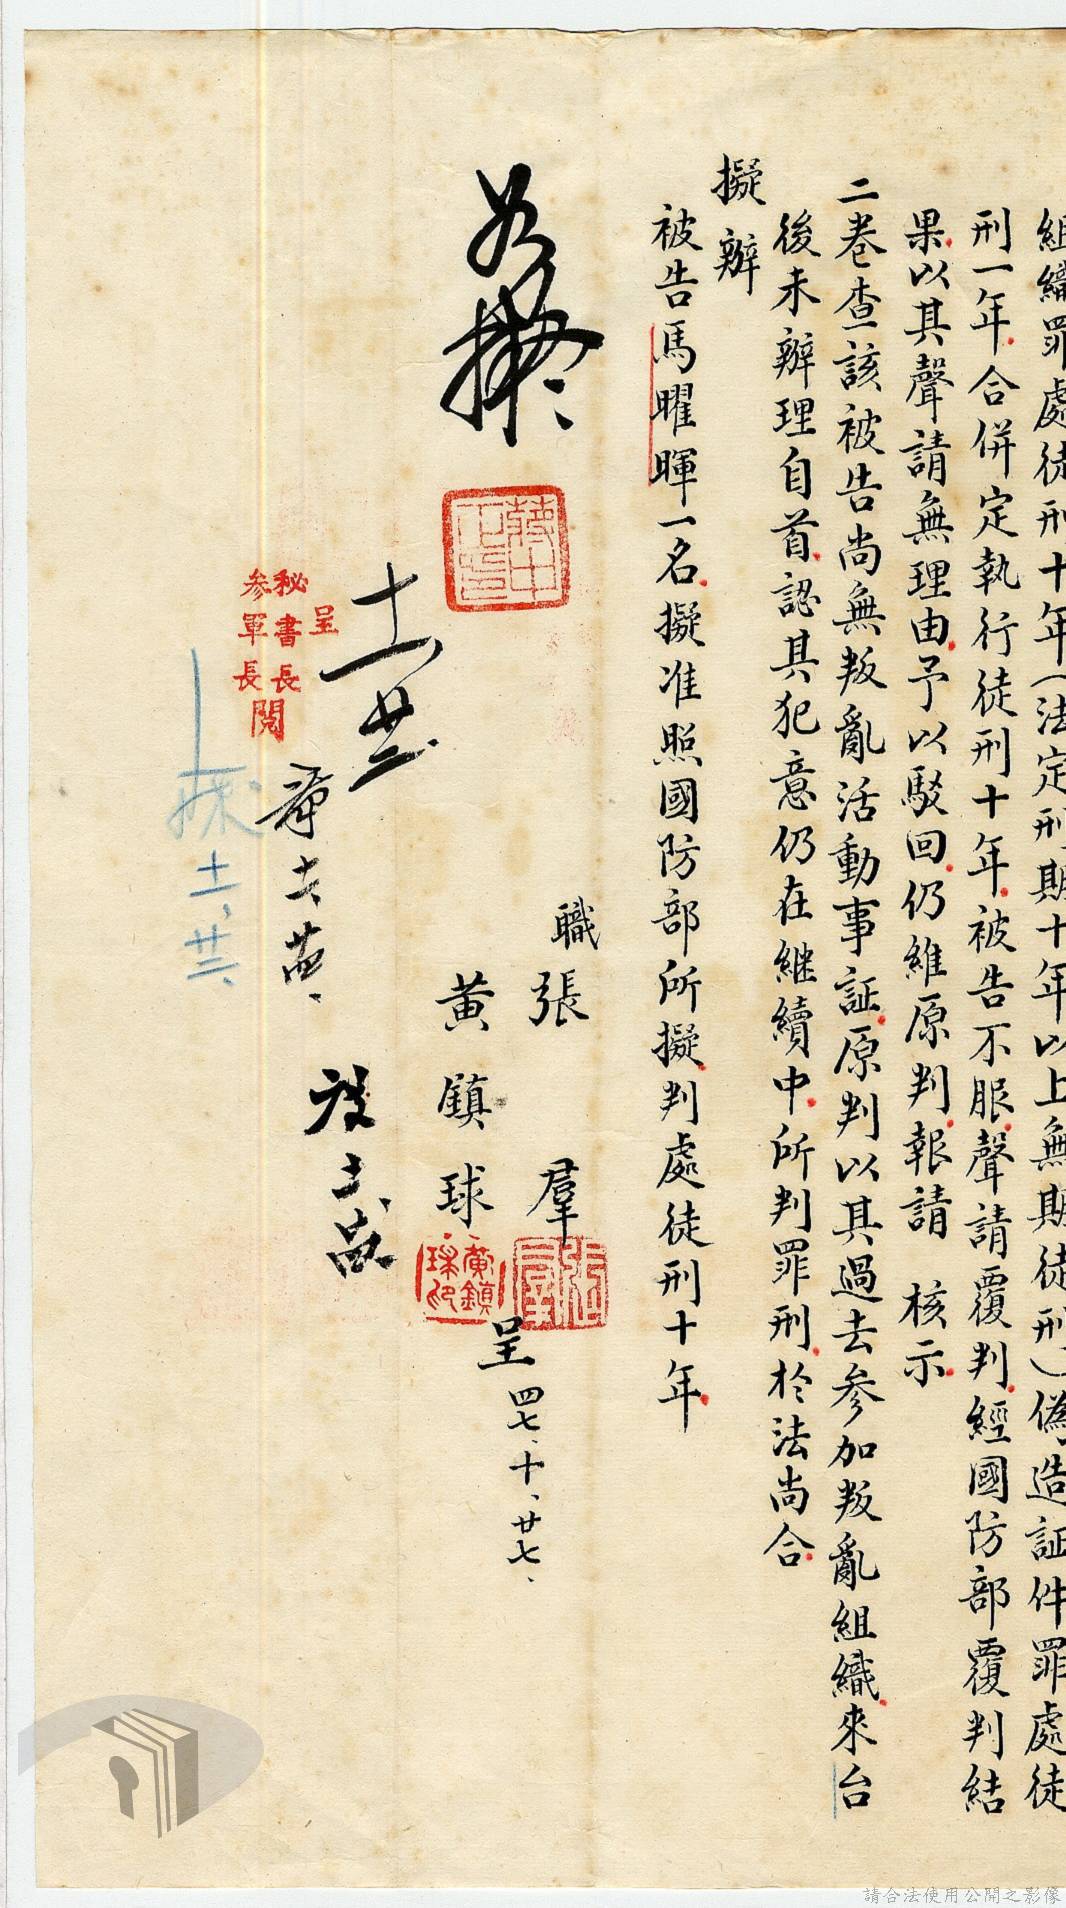 組織罪處徒刑十年(法定刑期十年以上無期徒刑)偽造証件罪處徒
刑一年合併定執行徒刑十年被告不服聲請覆判經國防部覆判結
果以其聲請無理由予以駁回仍維原判報請 核示
二卷查該被告尚無叛亂活動事証原判以其過去參加叛亂組織來台
後未辦理自首認其犯意仍在繼續中所判罪刑於法尚合
擬辦
被告馬曜暉一名擬准照國防部所擬判處徒刑十年
職張 羣
黃鎮球
呈 四七、十、廿七、
如擬
蔣中正印
十一 廿二
呈
秘書長
參軍長
閱
張羣
黃鎮球印
請合法使用公開之影像